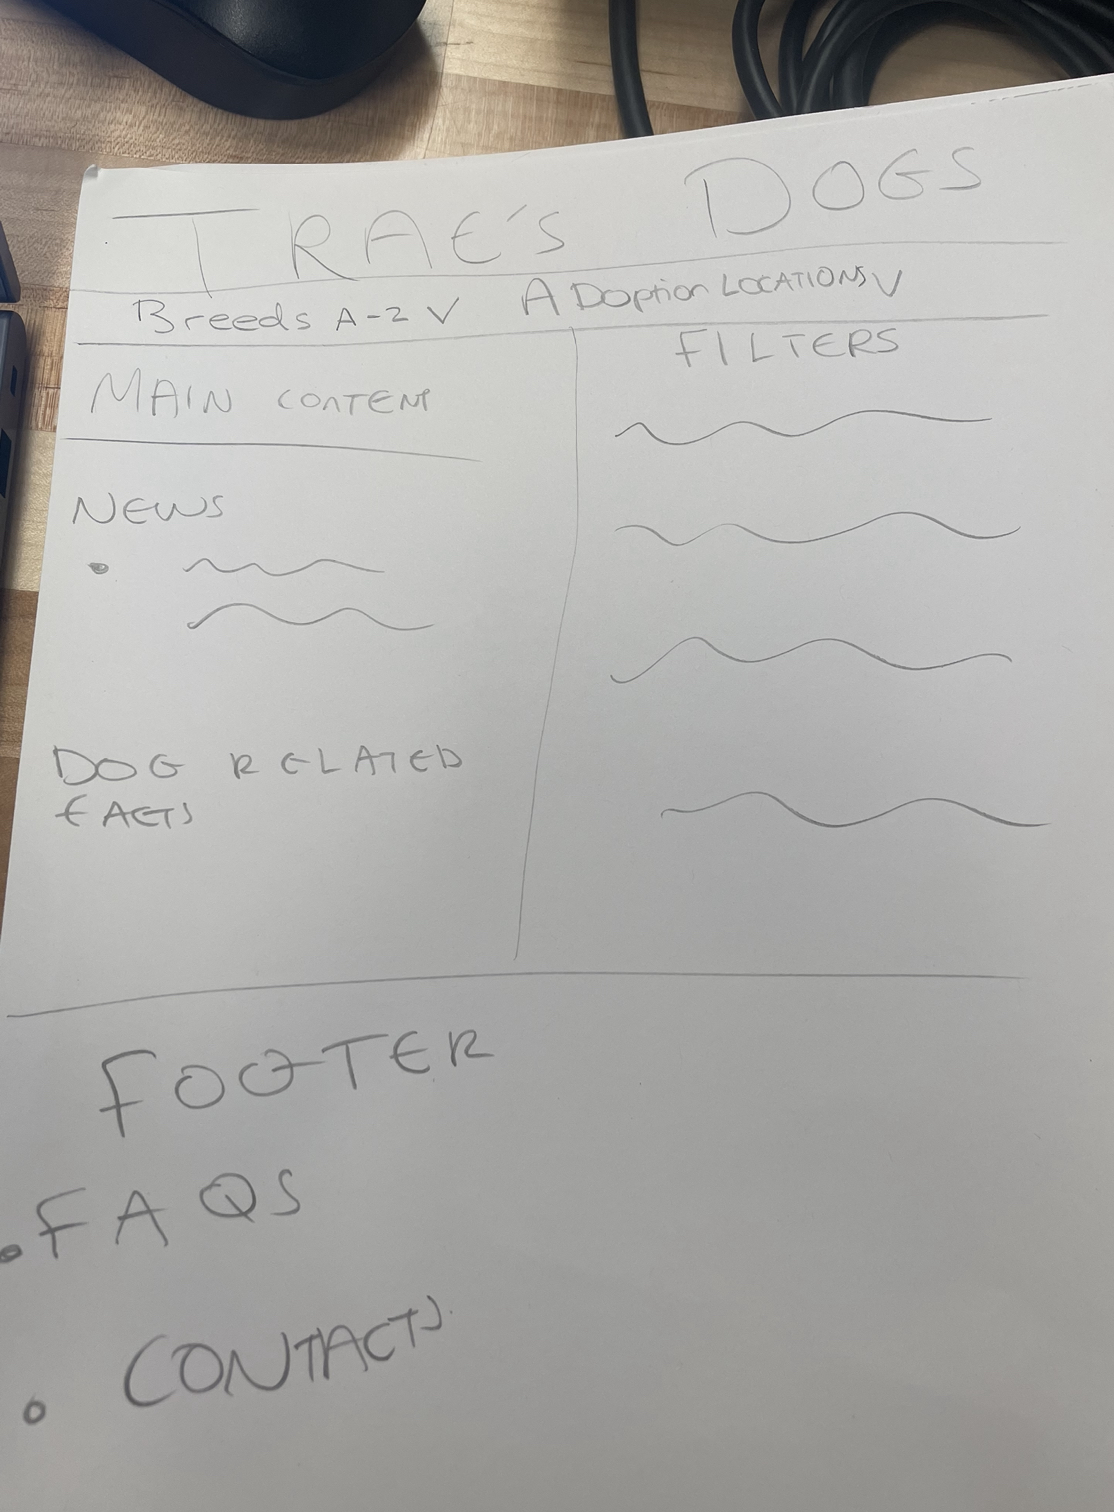 TRAE'S DOGS
Breeds A-Z V ADoption LOCATIONS V
MAIN CONTENT
FILTERS
NEWS
DOG RELATED
FACTS
FOOTER
• FAQS
• CONTACTS